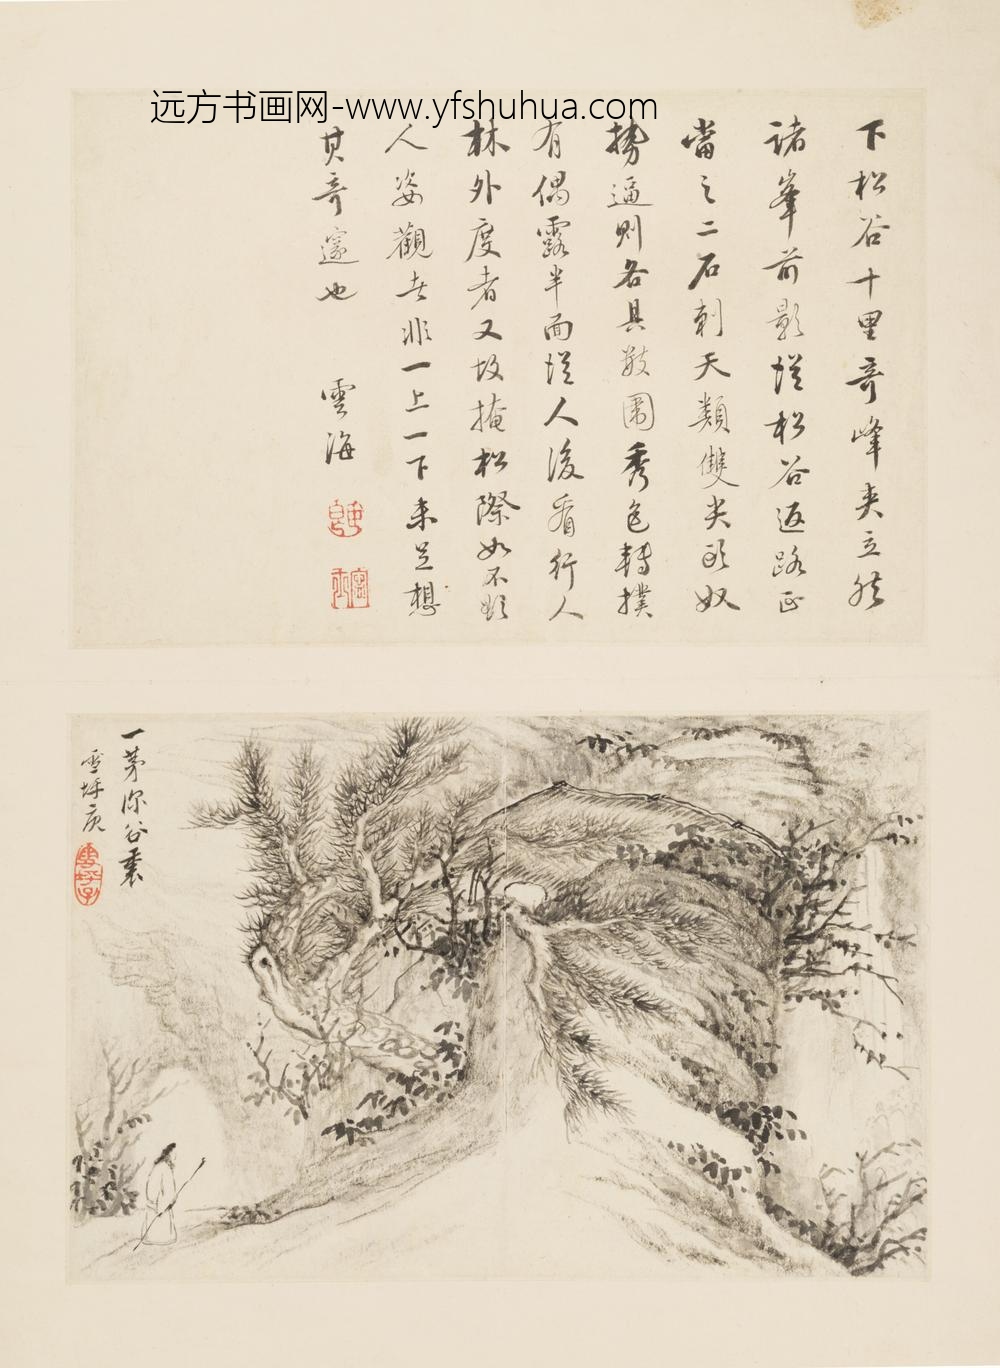 远方书画网-www.yfshuhua.com
下松谷十里奇峰夹立然
诸峯前影从松谷返路正
当之二石刺天类双尖两奴
势逼则各具数围秀色转扑
有偶露半面从人后看行人
林外度者又故掩松际如不欲
人姿观者非一上一下未足想
其奇邃也
雲海
一茅深谷裏
雪坪庚